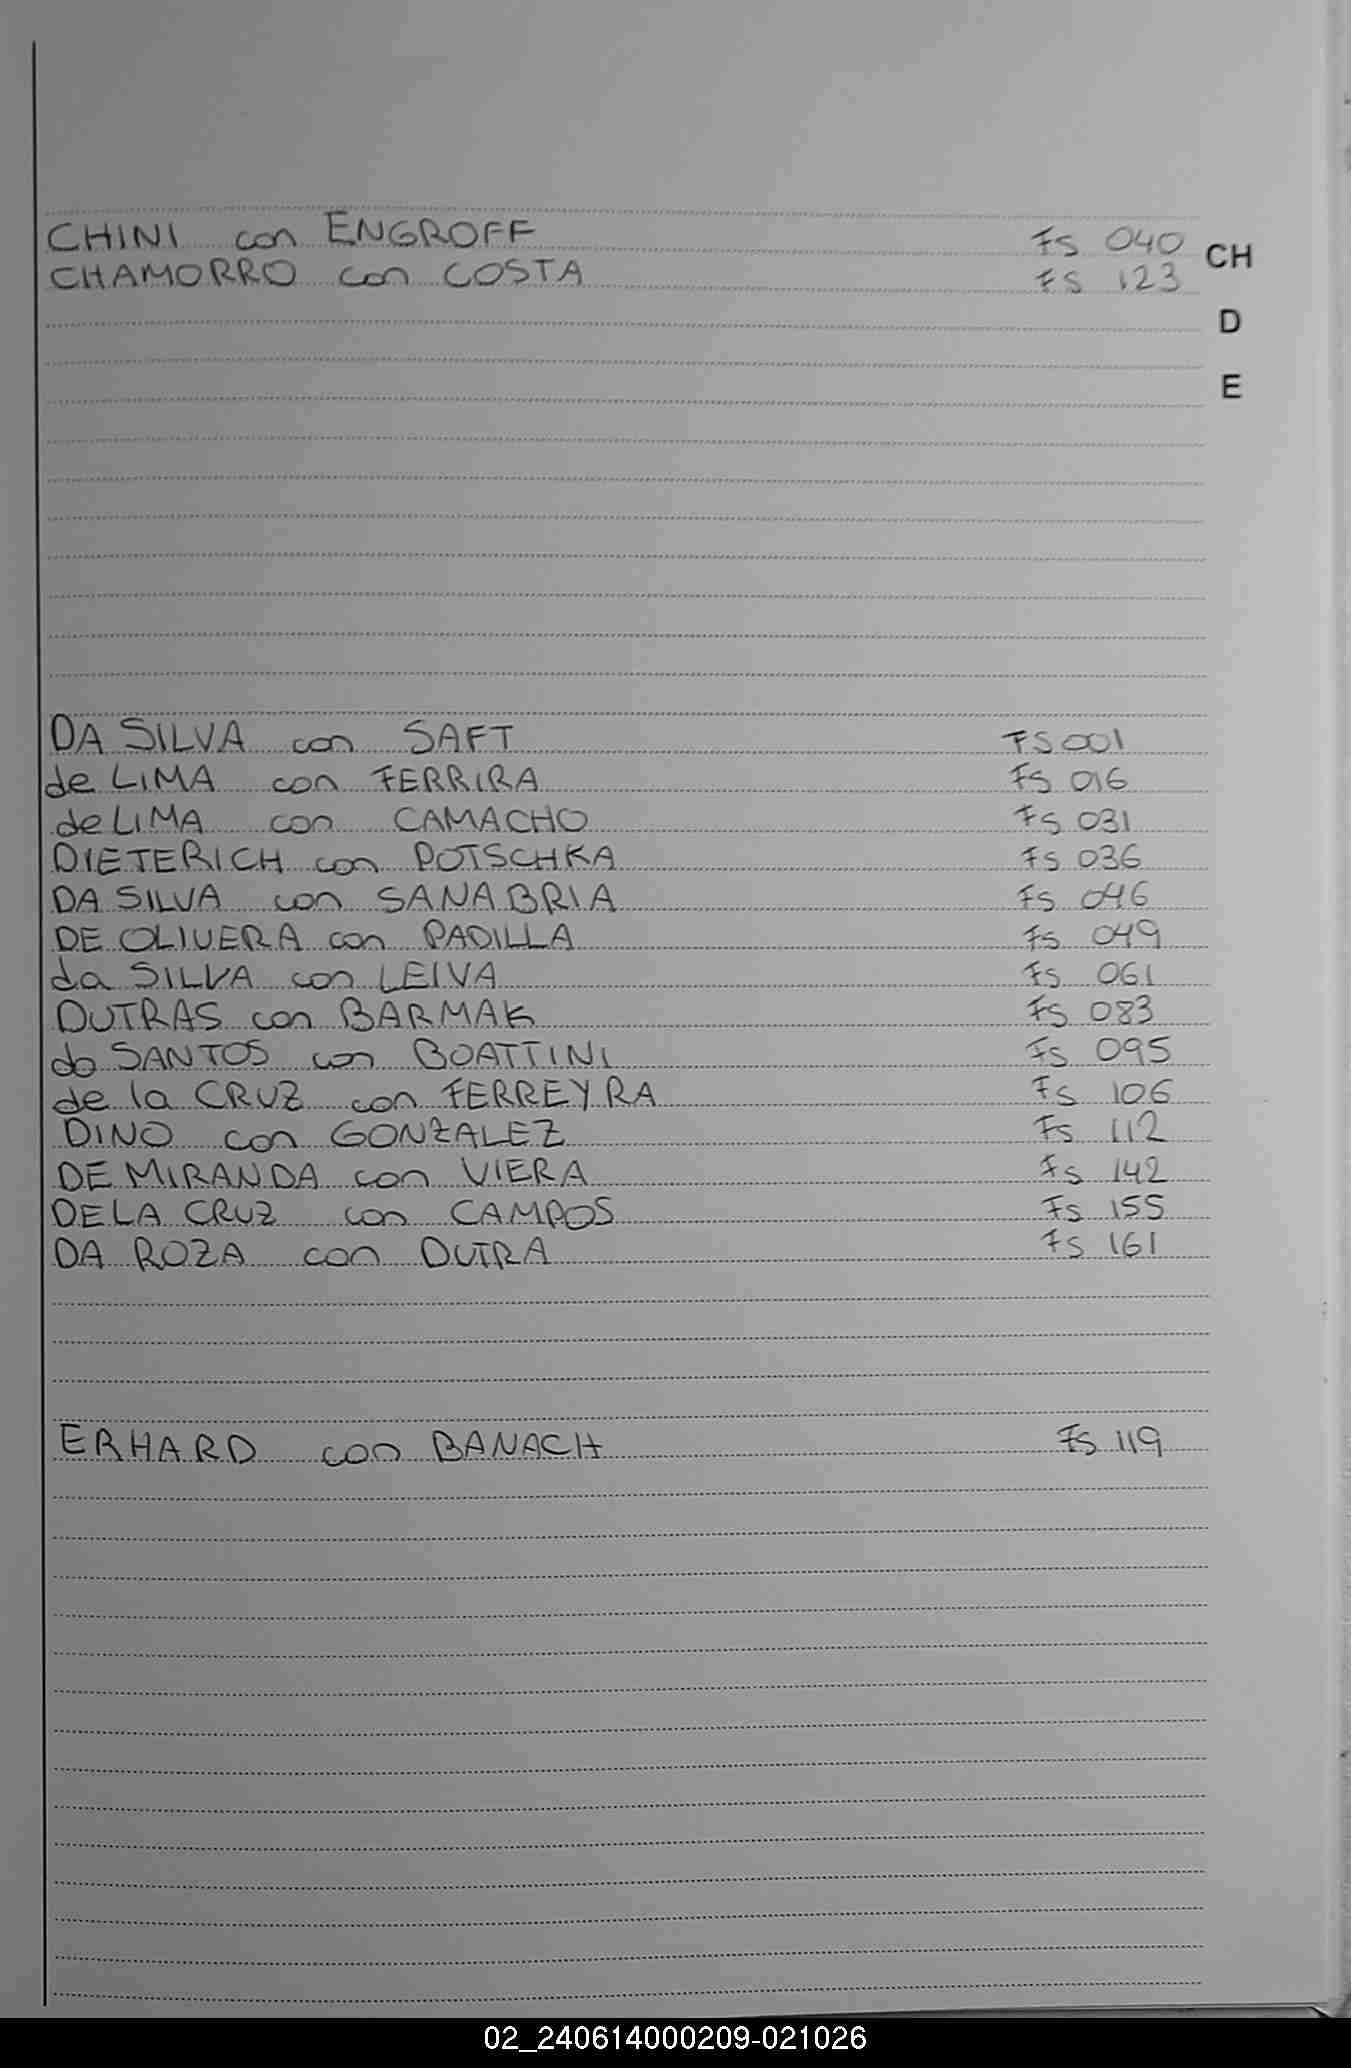 CHINI con ENGROFF FS 040 CH
CHAMORRO con COSTA FS 123
D
E
DA SILVA con SAFT FS 001
de LIMA con FERRIRA FS 016
de LIMA con CAMACHO FS 031
DIETERICH con POTSCHKA FS 036
DA SILVA con SANABRIA FS 046
DE OLIVERA con PADILLA FS 049
da SILVA con LEIVA FS 061
DUTRAS con BARMAK FS 083
do SANTOS con BOATTINI FS 095
de la CRUZ con FERREYRA FS 106
DINO con GONZALEZ FS 112
DE MIRANDA con VIERA FS 142
DE LA CRUZ con CAMPOS FS 155
DA ROZA con DUTRA FS 161
ERHARD con BANACH FS 119
02_240614000209-021026